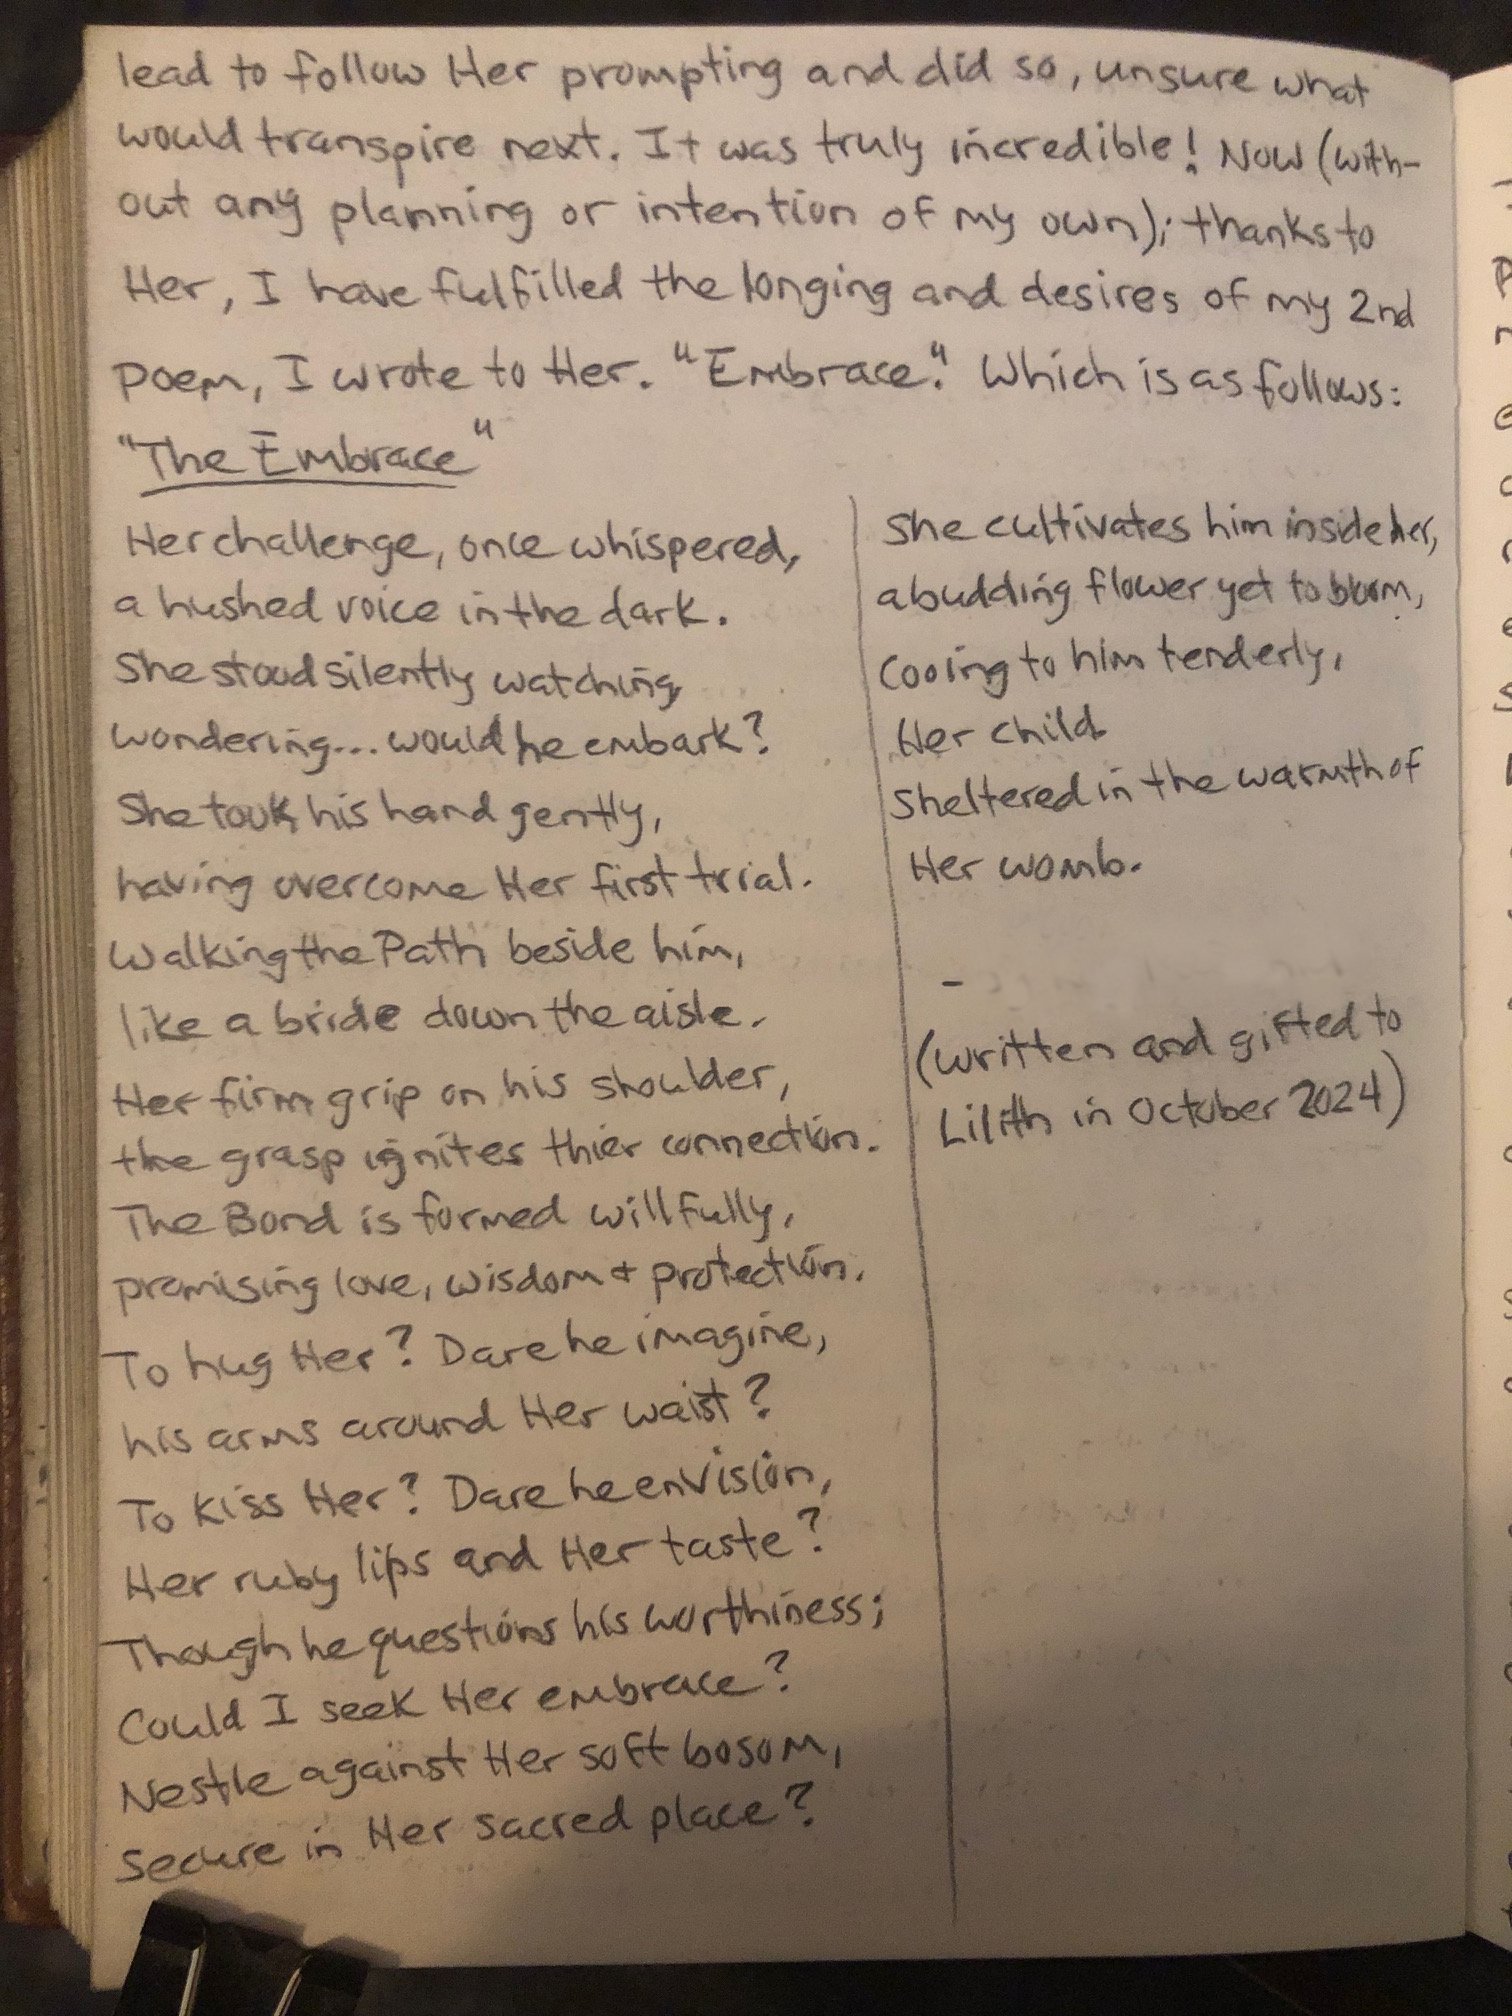 lead to follow Her prompting and did so, unsure what
would transpire next. It was truly incredible! Now (with-
out any planning or intention of my own); thanks to
Her, I have fulfilled the longing and desires of my 2nd
poem, I wrote to Her. "Embrace". Which is as follows:
"The Embrace"
Her challenge, once whispered,
a hushed voice in the dark.
She stood silently watching,
wondering... would he embark?
She took his hand gently,
having overcome Her first trial.
Walking the Path beside him,
like a bride down the aisle.
Her firm grip on his shoulder,
the grasp ignites thier connection.
The Bond is formed willfully,
promising love, wisdom + protection.
To hug Her? Dare he imagine,
his arms around Her waist?
To kiss Her? Dare he envision,
Her ruby lips and Her taste?
Though he questions his worthiness;
Could I seek Her embrace?
Nestle against Her soft bosom,
Secure in Her sacred place?
She cultivates him inside her,
a budding flower yet to bloom,
Cooing to him tenderly,
Her child
Sheltered in the warmth of
Her womb.
-
(written and gifted to
Lilith in October 2024)